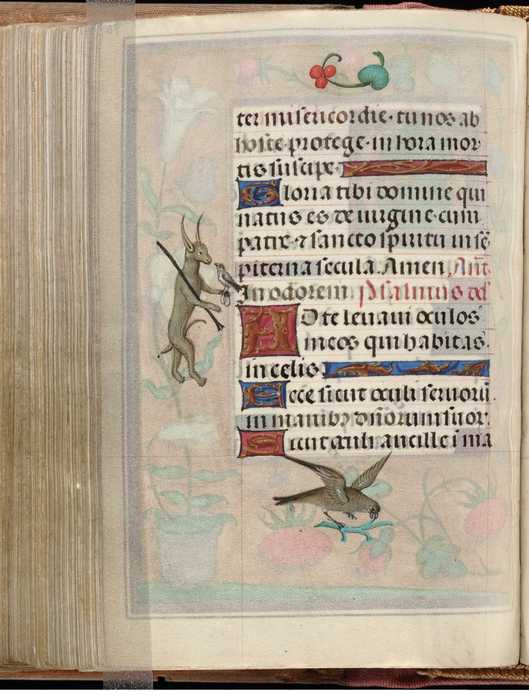 ter misericordie· tu nos ab
hoste protege· in hora mor
tis suscipe·
Gloria tibi domine qui
natus es de uirgine· cum
patre ⁊ sancto spiritu in sē
piterna secula. Amen. Añt.
In odorem. Psalmus dd̄
AD te leuaui oculos
meos qui habitas
in celis.
Ecce sicut oculi seruorū
in manibꝫ dn̄orum suor.
Sicut oculi ancille ī ma